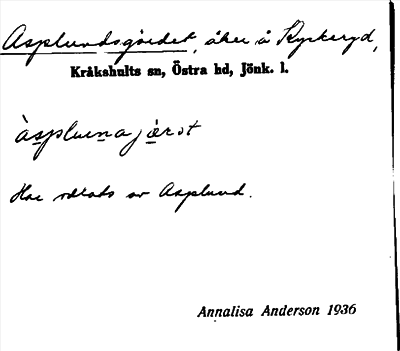 Asplundsgärdet, åker å Kyrkeryd,
Kråkshults sn, Östra hd, Jönk. l.
àsplunajærət
Har odlats av Asplund.
Annalisa Anderson 1936